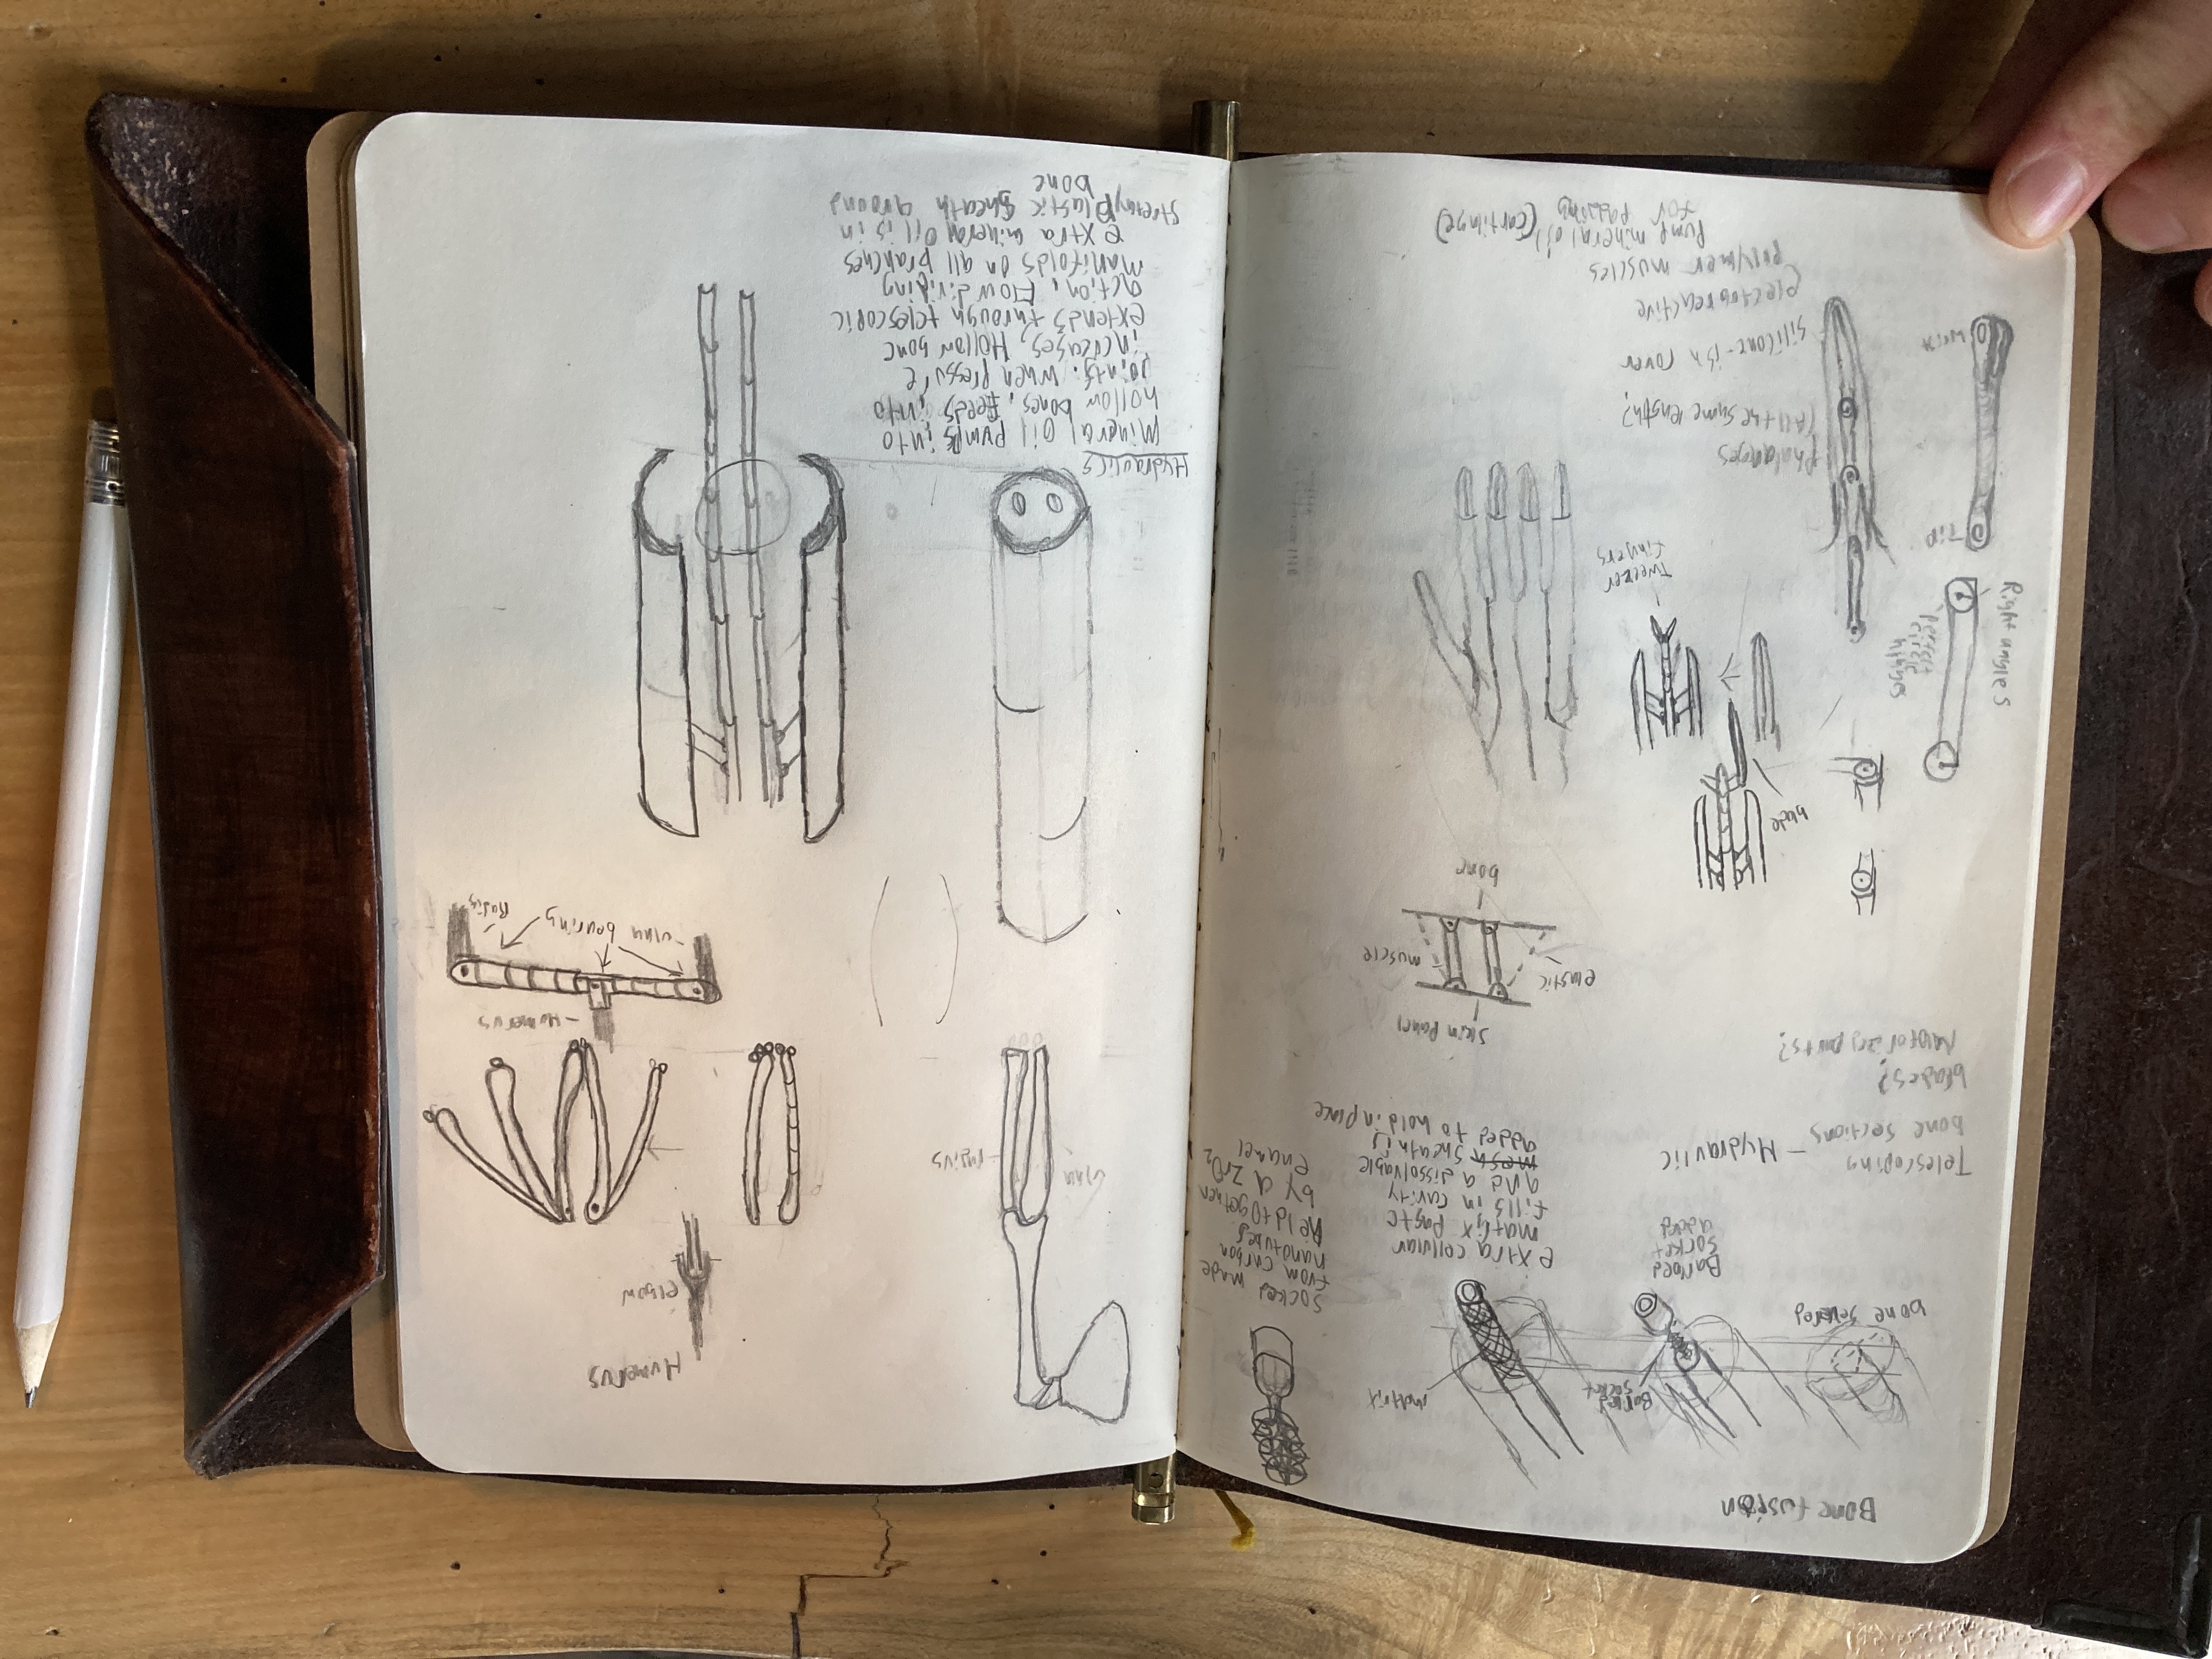 Bone fusion
bone severed
Barbed
socket
matrix
Barbed
socket
added
extra cellular
matrix paste
fills in cavity
and a dissolvable
mesh sheath is
added to hold in place
socket made
from carbon
nanotubes
held together
by a ZrO2
enamel
Telescoping
bone sections - Hydraulic
blades?
parts?
skin panel
elastic
muscle
bone
blade
Right angles
perfect
circle
hinges
Tweezer
fingers
Tip
Phalanges
(All the same length?
silicone-ish cover
electroreactive
polymer muscles
Pump mineral oil
for padding (cartilage)
Humerus
elbow
ulna
-radius
-Humerus
-ulna bearing
Radius
Hydraulics
Mineral oil pumps into
hollow bones, feeds into
joints. When pressure
increases, Hollow bone
extends through telescopic
action. Flow dividing
manifolds on all branches
extra mineral oil is in
stretchy plastic sheath around
bone